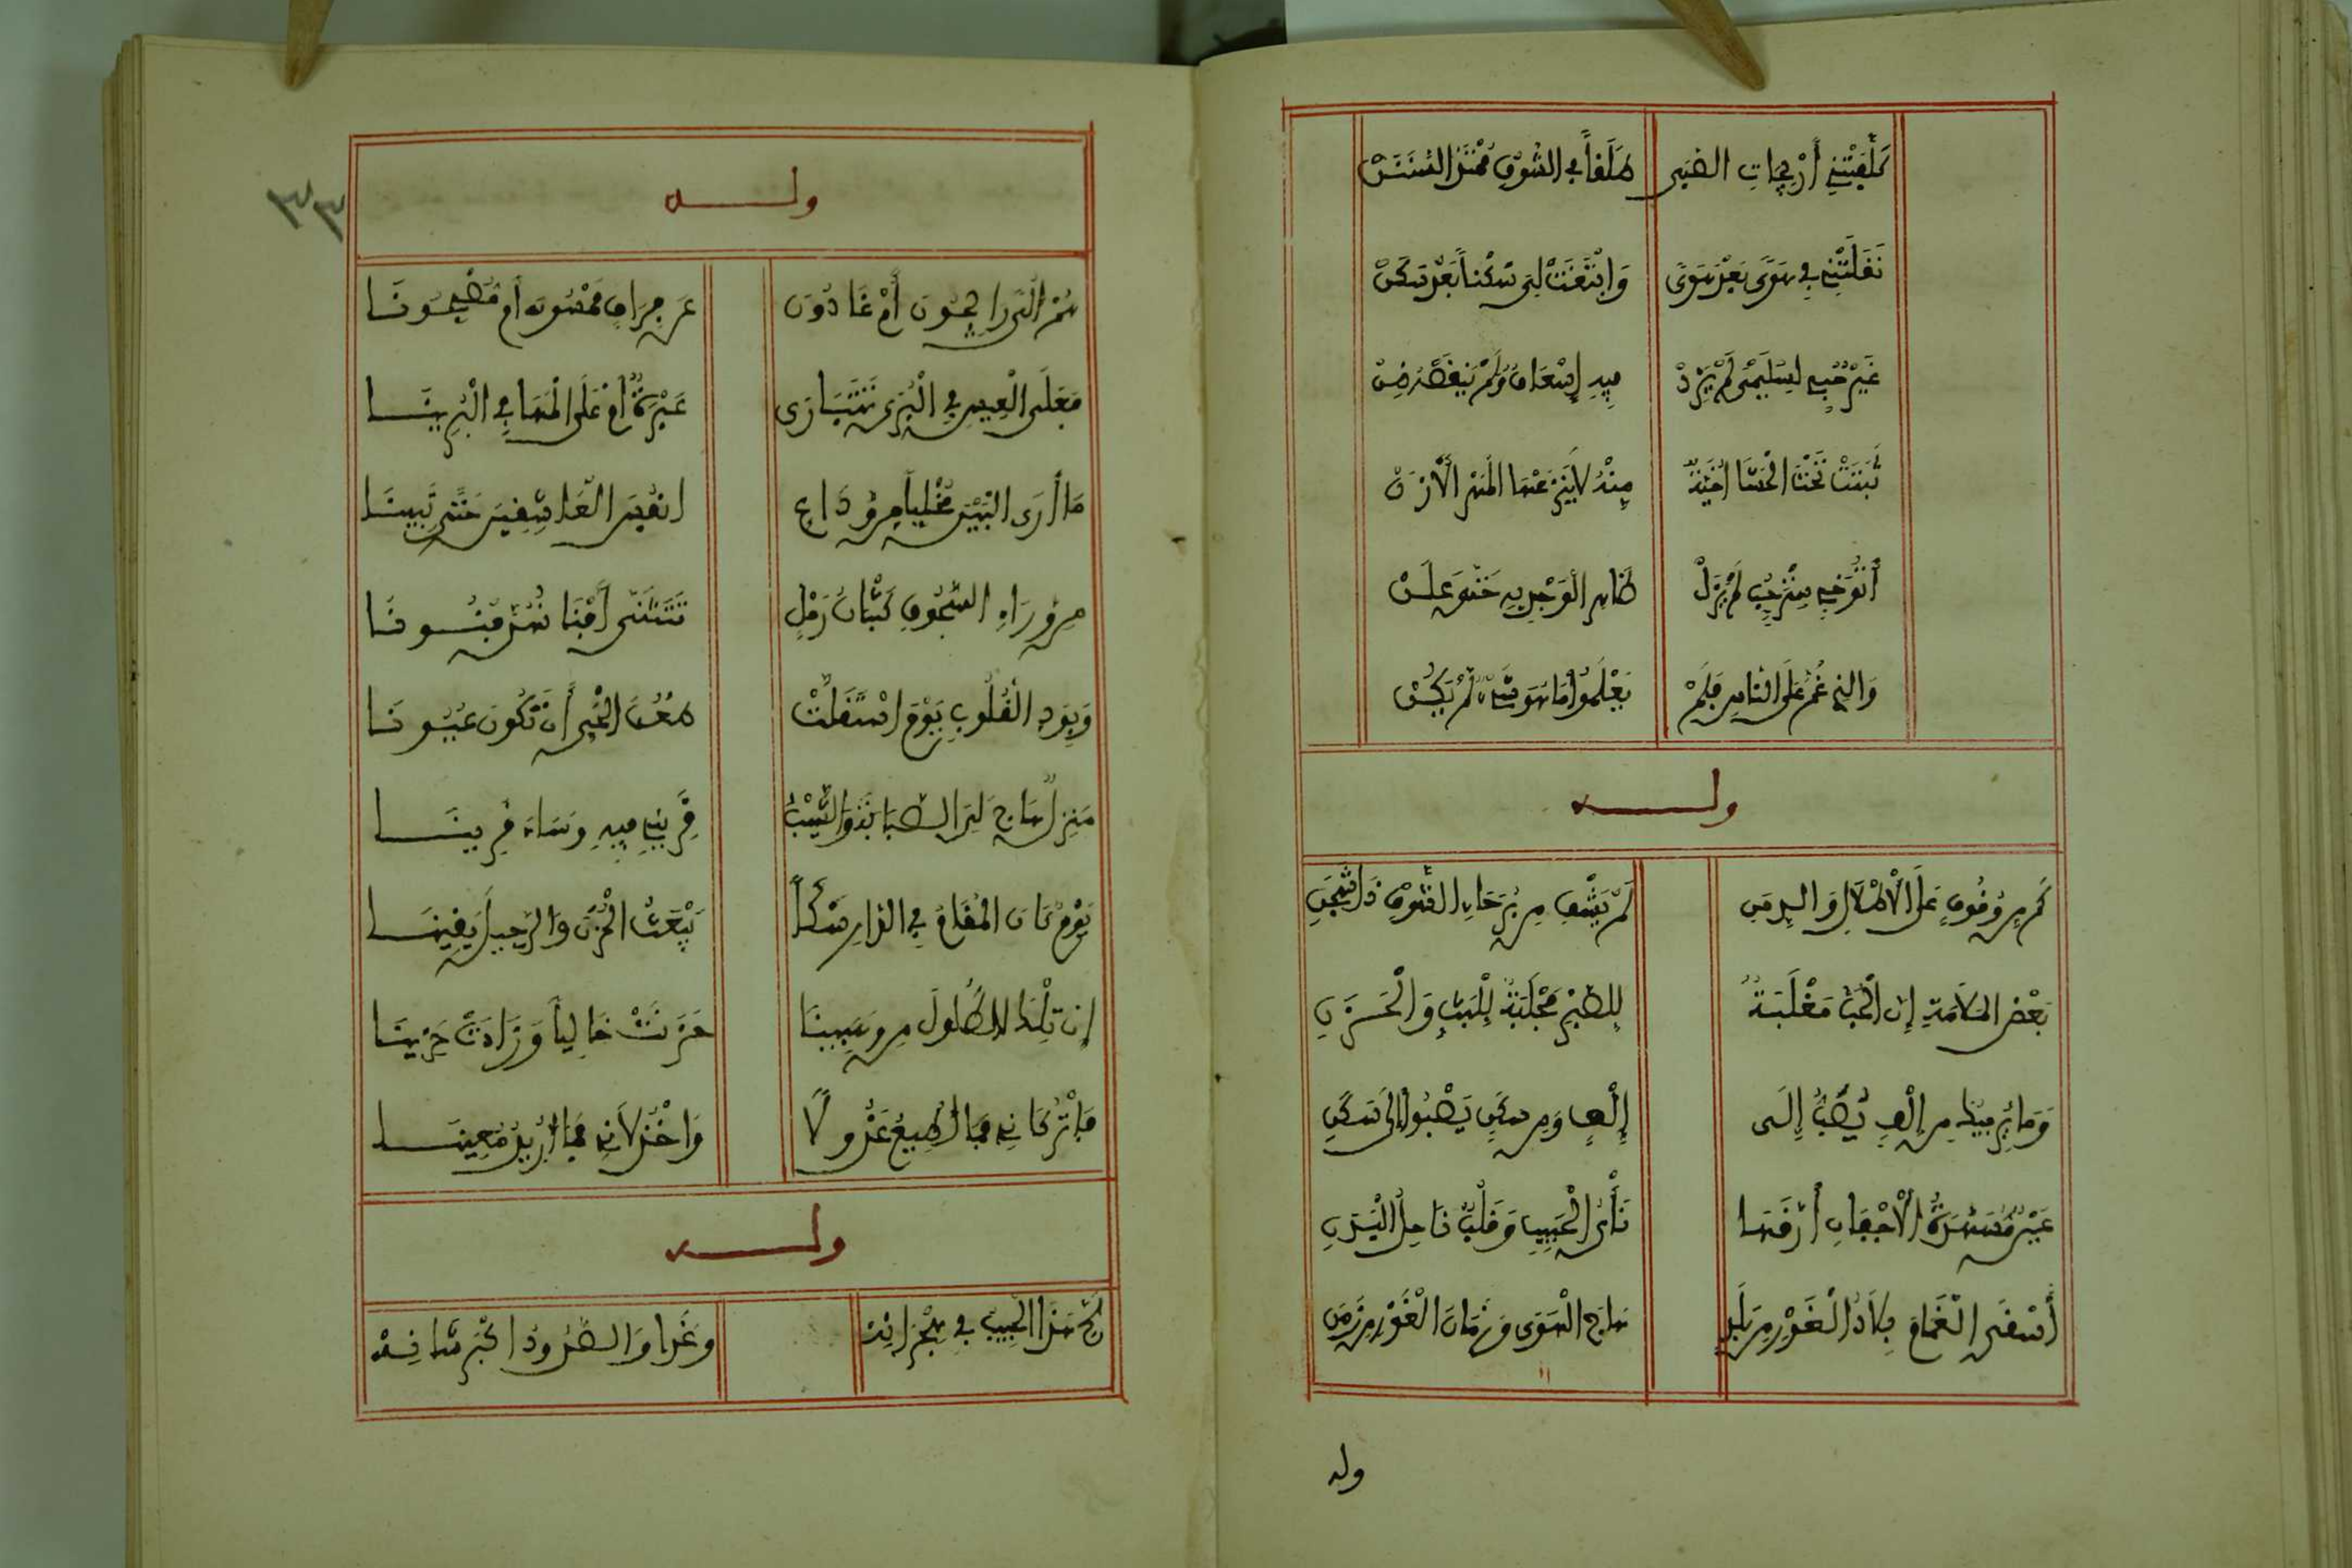 كَلَّفَتْنِي أَرْيحِيات الصبى طَلَقاً في الشوق ممتد السَّنَنْ
نَقَلَتْنِي في هَوًى بَعْد هَوًى وَابْتَغَتْ لِي سَكَناً بَعْدَ سَكَنْ
غَيْرَ حُبِّي لسليمى لم يزدْ فيه إسعاف ولم ينقصه ضنْ
ثَبَتَتْ تَحْتَ الحَشَا اخِيَّةٌ مِنْهُ لا ينزعها المهر الأرنْ
أتوخى ستر حب لم يزلْ ظاهر الوجد به حتى علنْ
والذي غُمَّ على الناس فلمْ يعلموا ما هو شيء لم يكنْ
ولـه
كم من وقوف على الأطلال والدمن لم يشف من برحاء الشوق ذا شجن
بعض الملامة إن الحب مغلبة للصبر مجلبة للبث والحزن
وما يريبك من إلف يصب إلى إلف ومن سكن يصبوا إلى سكن
عين مسهدة الأجفان أرقها نأى الحبيب وقلب ناحل البدن
أسقى الغمام بلاد الغور من بلد هاج الهوى وزمان الغور من زمن
وله
٣٣
ولـه
هم ألى رايحون أم غادون عن فراق ممسون أم مصبحونا
فعلى العيس في البرى تتبارى عبرة أم على المها في البرينا
ما أرى البين مخليا من وداع انفس العاشقين حتى تبينا
من وراء السجوف كثبان رمل تتثنى أفنانهن فنونا
وبود القلوب يوم استقلت ظعن الحي أن تكون عيونا
منزل هاج لي الصبا والشيب قريني فيه وساء قرينا
يوم كان المقام في الدار شكا يبعث الحزن والرحيل يقينا
إن تلك الطلول من وهبينا حزنت خاليا وزادت حزينا
فاتركاني فما اطيع عذولا واخذلاني فما اريد معينا
ولـه
لج هذا الحبيب في هجرانه وغدا والصدود اكبر شانه